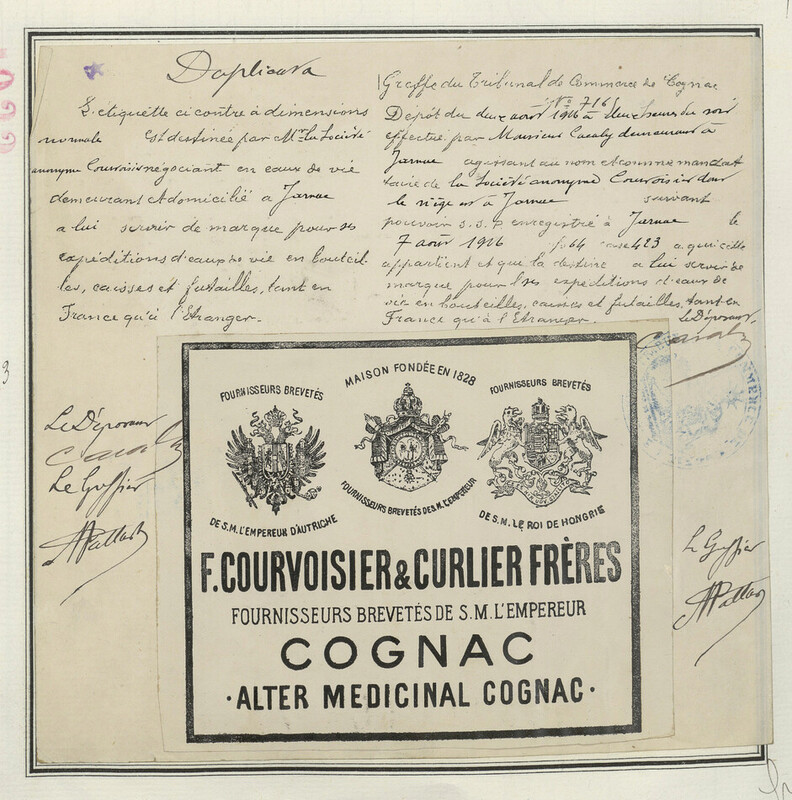 Duplicata
L'étiquette ci contre à dimensions
normale est destinée par Mr la Société
anonyme Courvoisier négociant en eaux de vie
demeurant & domicilié à Jarnac
a lui servir de marque pour ses
expéditions d'eaux de vie en bouteil-
les, caisses et futailles, tant en
France qu'à l'Etranger.
Greffe du Tribunal de Commerce de Cognac
No 716
Dépôt du deux août 1916 à deux heures du soir
effectué par Monsieur demeurant à
Jarnac agissant au nom et comme mandat
taire de la Société anonyme Courvoisier dont
le siège est à Jarnac suivant
pouvoir s.s.p enregistré à Jarnac le
7 août 1916 fo 64 case 423 a qui elle
appartient et que la destine a lui servir de
marque pour ses expéditions d'eaux de
vie en bouteilles, caisses et futailles, tant en
France qu'à l'Etranger.
Le Déposant
Le Déposant
Le Greffier
Le Greffier
3
MAISON FONDÉE EN 1828
FOURNISSEURS BREVETÉS
DE S.M. L'EMPEREUR D'AUTRICHE
FOURNISSEURS BREVETÉS DE S.M. L'EMPEREUR
FOURNISSEURS BREVETÉS
DE S.M. LE ROI DE HONGRIE
F. COURVOISIER & CURLIER FRÈRES
FOURNISSEURS BREVETÉS DE S.M. L'EMPEREUR
COGNAC
·ALTER MEDICINAL COGNAC·